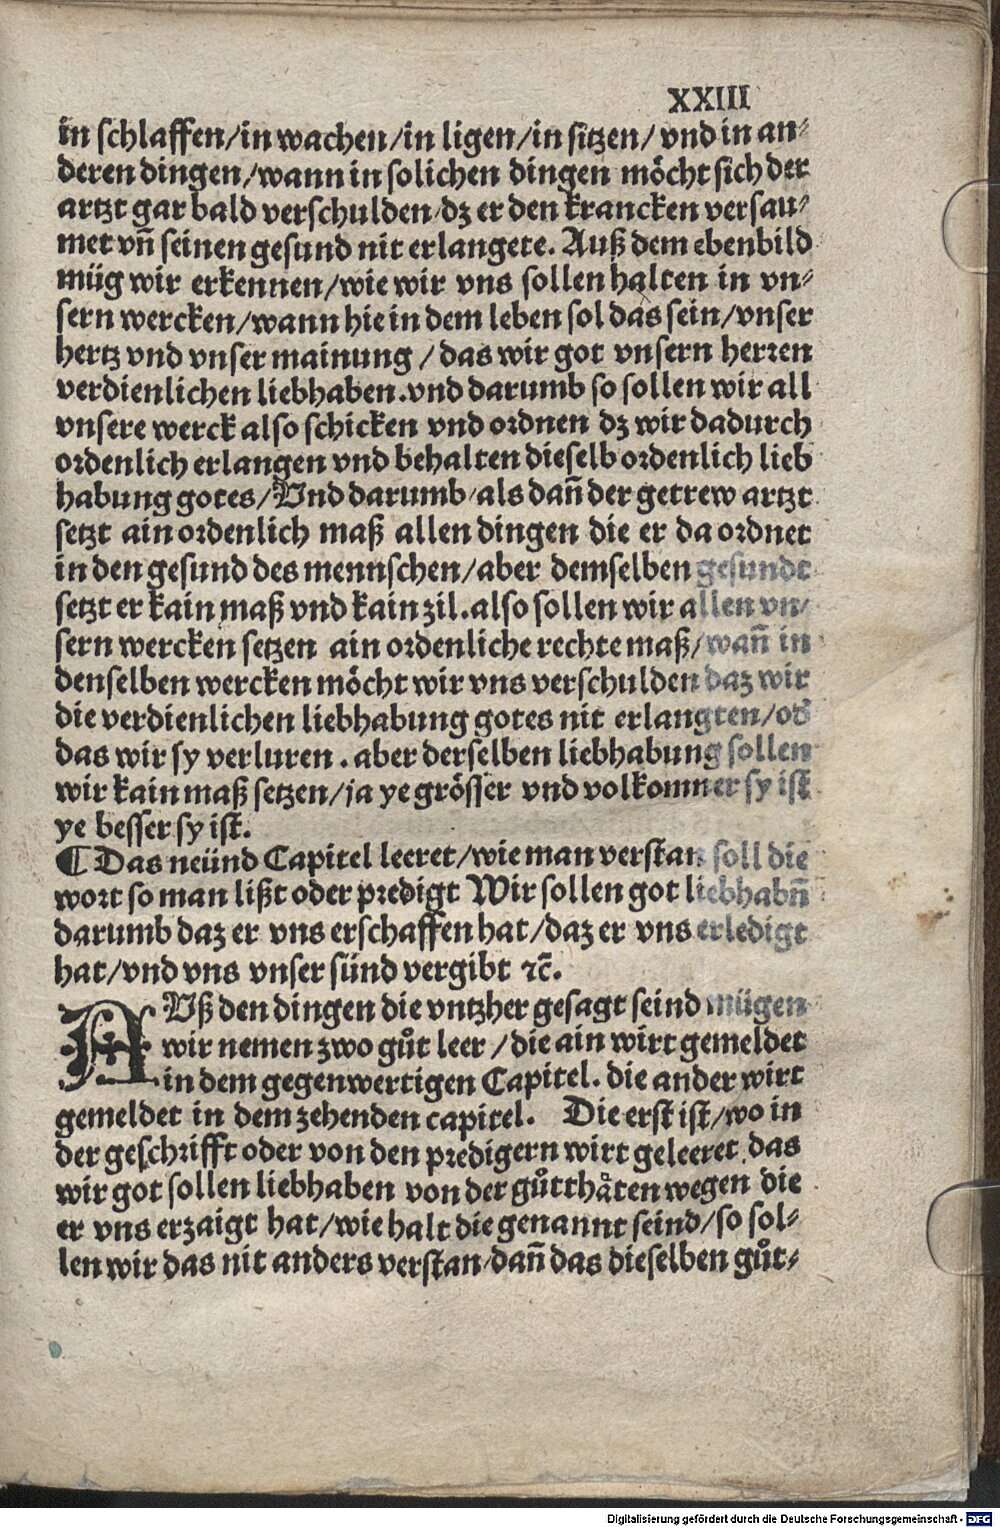 XXIII
in schlaffen/in wachen/in ligen/in sitzen/ vnd in an⸗
deren dingen/wann in solichen dingen möcht sich der
artzt gar bald verschulden/dz er den krancken versau⸗
met vñ seinen gesund nit erlangete. Auß dem ebenbild
müg wir erkennen/wie wir vns sollen halten in vn⸗
sern wercken/wann hie in dem leben sol das sein/vnser
hertz vnd vnser mainung / das wir got vnsern herren
verdienlichen liebhaben.vnd darumb so sollen wir all
vnsere werck also schicken vnd ordnen dz wir dadurch
ordenlich erlangen vnd behalten dieselb ordenlich lieb
habung gotes/Vnd darumb/als dañ der getrew artzt
setzt ain ordenlich maß allen dingen die er da ordnet
in den gesund des mennschen/aber demselben gesundt
setzt er kain maß vnd kain zil.also sollen wir allen vn⸗
sern wercken setzen ain ordenliche rechte maß/wañ in
denselben wercken möcht wir vns verschulden daz wir
die verdienlichen liebhabung gotes nit erlangten/od̕
das wir sy verluren . aber derselben liebhabung sollen
wir kain maß setzen/ja ye grösser vnd volkomner sy ist
ye besser sy ist.
¶ Das neünd Capitel leeret/wie man verstan soll die
wort so man lißt oder predigt Wir sollen got liebhabñ
darumb daz er vns erschaffen hat/daz er vns erledigt
hat/vnd vns vnser sünd vergibt ⁊c̄.
AVß den dingen die vntzher gesagt seind mügen
wir nemen zwo gůt leer /die ain wirt gemeldet
in dem gegenwertigen Capitel. die ander wirt
gemeldet in dem zehenden capitel. Die erst ist/wo in
der geschrifft oder von den predigern wirt geleeret das
wir got sollen liebhaben von der gůtthäten wegen die
er vns erzaigt hat/wie halt die genannt seind/so sol⸗
len wir das nit anders verstan/dañ das dieselben gůt⸗
Digitalisierung gefördert durch die Deutsche Forschungsgemeinschaft - DFG